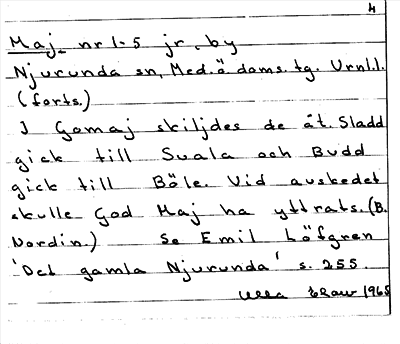 4
Maj nr 1-5 jr, by
Njurunda sn, Med.ö doms. tg. Vrnl.l.
(forts.)
I Gomaj skiljdes de åt. Sladd
gick till Svala och Budd
gick till Böle. Vid avskedet
skulle God Maj ha yttrats. (B.
Nordin.) Se Emil Löfgren
'Det gamla Njurunda' s. 255.
Ulla 1965